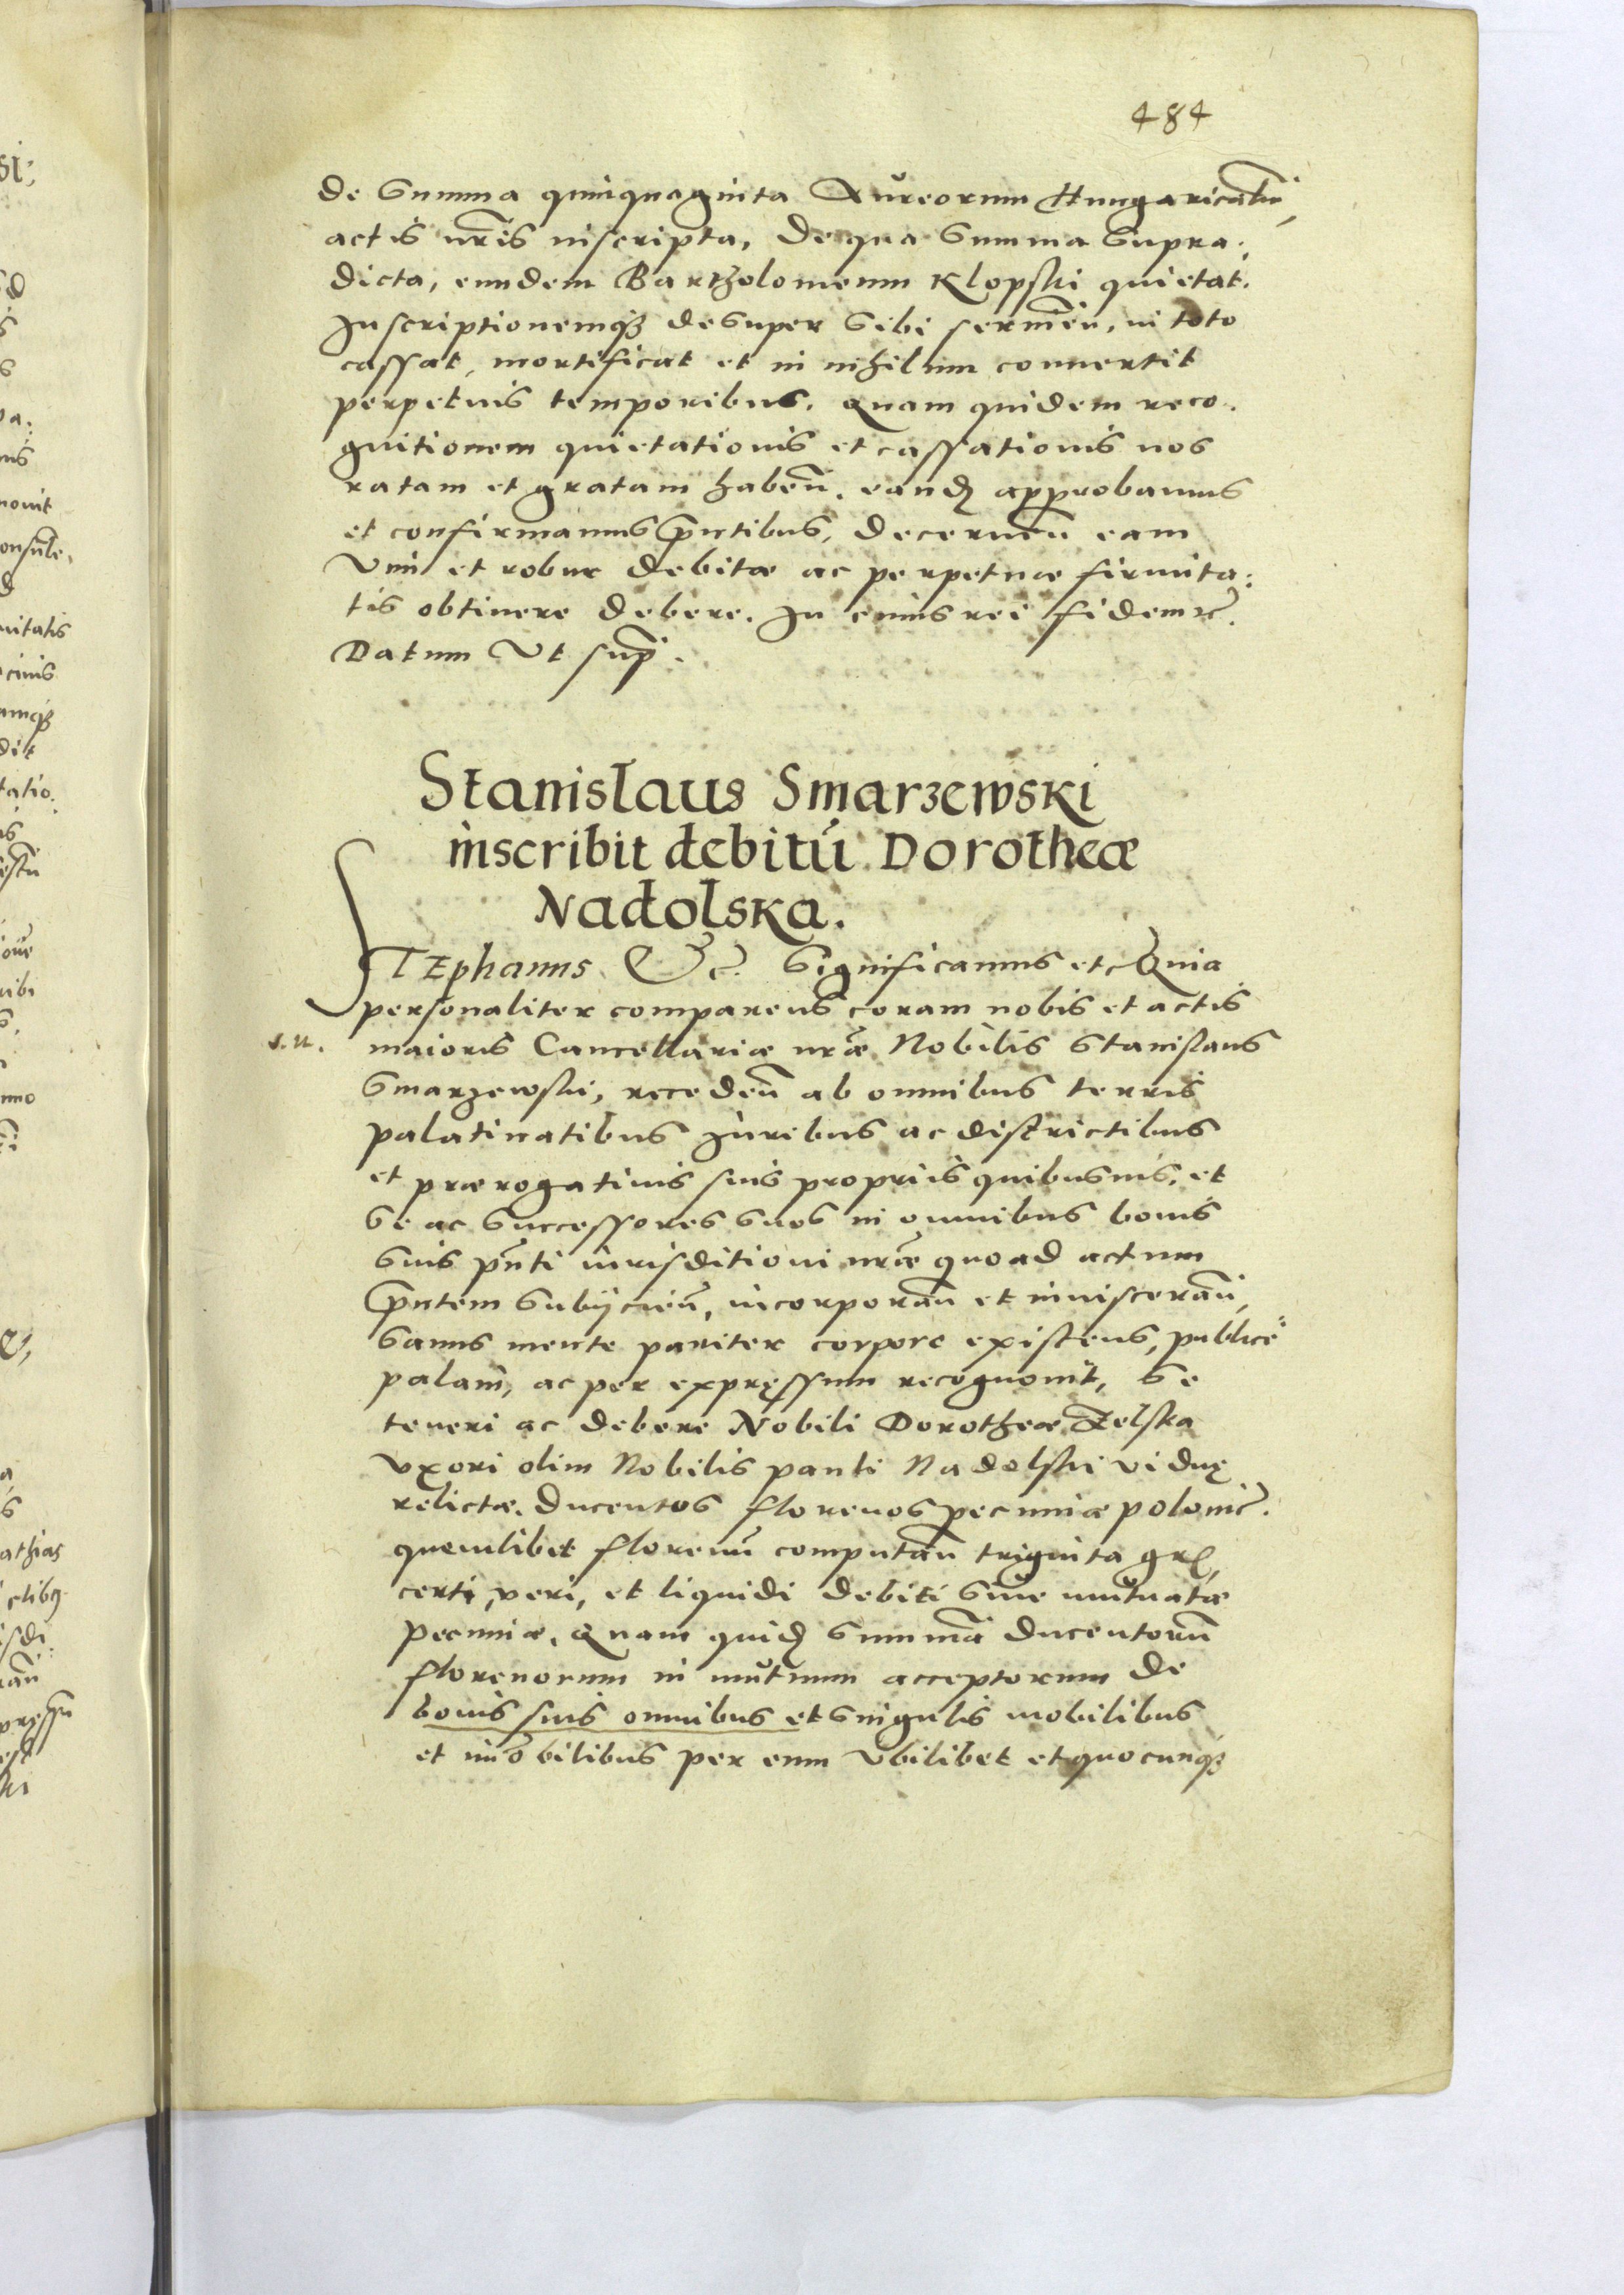 484
de Summa quinquaginta Aureorum Hungaricalium
actis nris inscripta, de qua Summa Supra:
dicta, eundem Bartholomeum Klopski quietat.
Inscriptionemq3 desuper sibi in toto
cassat, mortificat et in nihilum conuertit
perpetuis temporibus. Quam quidem reco:
gnitionem quietationis et cassationis nos
ratam et gratam haben̄. eand approbamus
et confirmamus pn̄tibus, decernen̄ eam
Vim et robur debitæ ac perpetuæ firmita:
tis obtinere debere. In cuius rei fidem etc.
Datum Vt sup̄.
Stanislaus Smarzewski
inscribit debitū Dorotheæ
Nadolska.
STEphanus Etc. Significamus etc Quia
personaliter comparens coram nobis et actis
s.u. maioris Cancellariæ nr̄æ Nobilis Stanislaus
Smarzewski, receden̄ ab omnibus terris
palatinatibus Iuribus ac districtibus
et prærogatiuis suis proprijs quibusuis, et
Se ac Successores suos in omnibus bonis
Suis pn̄ti iurisditioni nr̄æ quoad actum
pn̄tem Subijcien̄, incorporan̄ et inuisceran̄,
Sanus mente pariter corpore existens, publicè
palam, ac per expręssum recognouit, Se
teneri ac debere Nobili Dorotheæ Zelska
Vxori olim Nobilis pauli Nadolski viduę
relictæ. Ducentos florenos pecuniæ polonic.
quemlibet florenū computan̄ triginta gr̄
certi, veri, et liquidi debiti Siue mutuatæ
pecuniæ. Quam quid Summā ducentorū
florenorum in mŭtuum acceptorum de
bonis suis omnibus et Singulis mobilibus
et im̄obilibus per eum Vbilibet et quocunq3